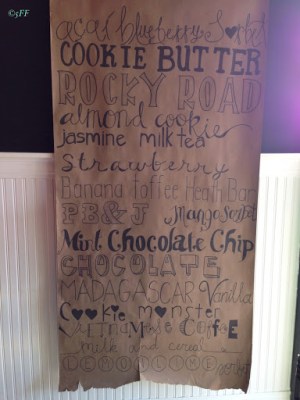 ©5FF
acai blueberry Sorbet
COOKIE BUTTER
ROCKY ROAD
almond cookie
jasmine milk tea
strawberry
Banana toffee Heath Bar
PB&J Mango Sorbet
Mint Chocolate Chip
CHOCOLATE
MADAGASCAR Vanilla
Cookie monster
VIETNAMESE COFFEE
milk and cereal
sorbet